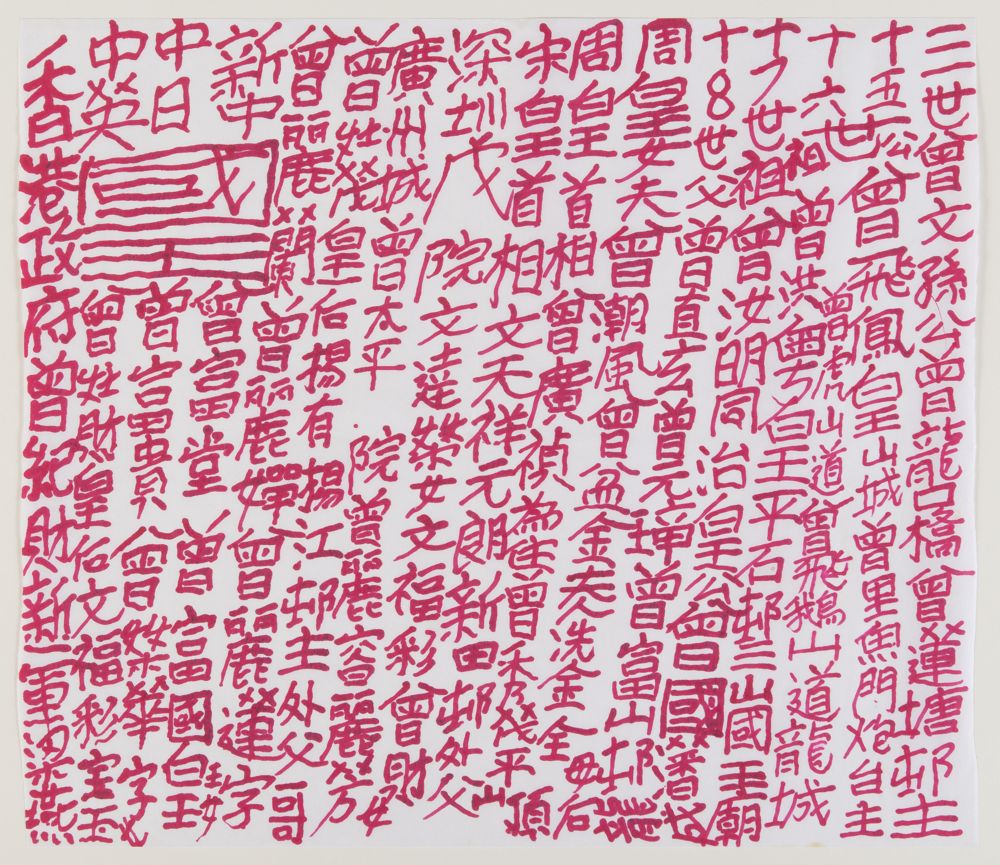 二世曾文孫公曾龍口橋曾蓮塘邨主
十五公曾飛鳳皇山城曾里魚門炮台主
十六世祖曾洪
曾虎山道曾飛鵝山道龍城
皇平石邨三山國王廟
世祖曾汝明同治皇公曾國
十8世父曾直玄曾元珅曾富山邨
周皇女夫曾潮風曾益金夫冼金全
周皇首相曾廣禎曾禾茂平山頂
宋皇首相文天祥元朗新田邨外父
深圳戊院文達榮女文福彩曾財女
廣州城曾太平院曾麗容麗芳
曾灶榮皇后揚有揚江邨主外父哥
曾麗闕曾麗嬋曾麗蓮字
新中國王
曾富堂曾富國皇
中日
曾富貴曾榮華字
中英
曾灶財皇后文福彩宝玉
香港政府曾紀財新一軍